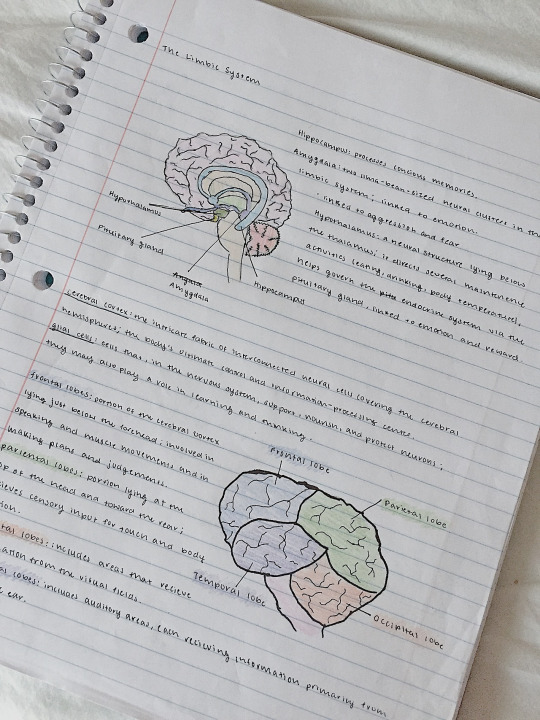 The Limbic System
Hippocampus: processes concious memories.
Amygdala: two lima-bean-sized neural clusters in the
limbic system; linked to emotion.
linked to aggression and fear
Hypothalamus: a neural structure lying below
the thalamus; it directs several maintenence
activities (eating, drinking, body temperature),
helps govern the endocrine system via the
pituitary gland, linked to emotion and reward
Hypothalamus
Pituitary gland
Amygdala
Hippocampus
cerebral cortex: the intricate fabric of interconnected neural cells covering the cerebral
hemispheres; the body's ultimate control and information-processing centre.
glial cells: cells that, in the nervous system, support, nourish, and protect neurons;
they may also play a role in learning and thinking.
frontal lobes: portion of the cerebral cortex
lying just below the forehead; involved in
speaking and muscle movements and in
making plans and judgements.
pariental lobes: portion lying at the
op of the head and toward the rear;
ieves sensory input for touch and body
tion.
tal lobes: includes areas that recieve
ation from the visual fields.
al lobes: includes auditory areas, each recieving information primarily from
ear.
Frontal lobe
Parietal lobe
Temporal lobe
Occipital lobe